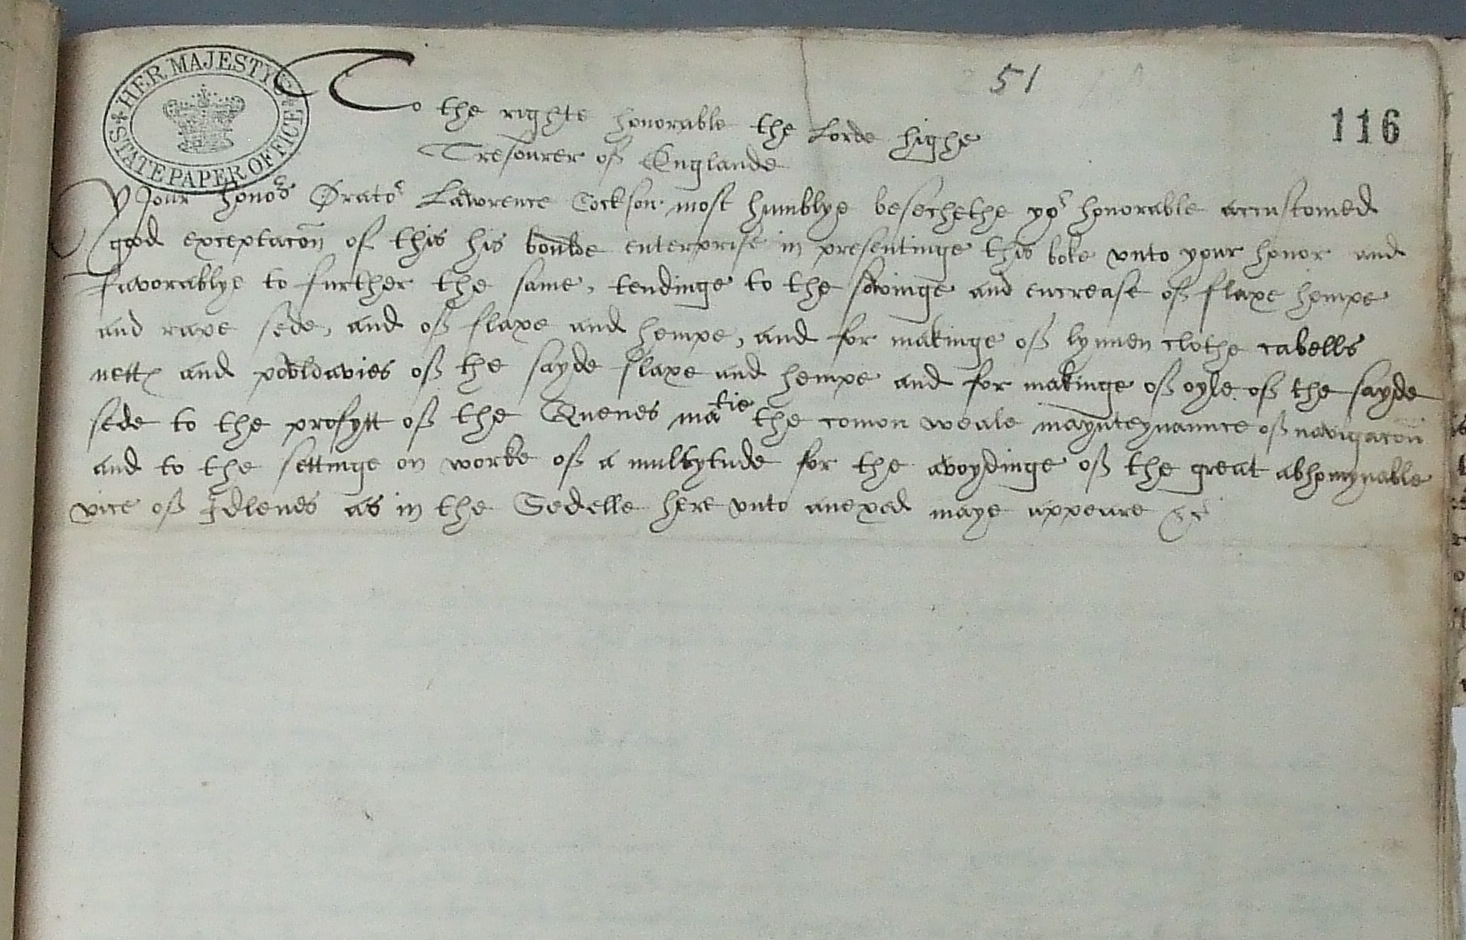 HER MAJESTY'S STATE PAPER OFFICE
51
116
To the righte honorable the Lorde highe
Tresourer of Englande
Your honors Orator Lawrence Cockson most humblye besechethe yor honorable accustomed
good exceptacon of this his boulde enterprise in presentinge this boke vnto your honor and
favorablye to further the same, tendinge to the sowinge and encrease of flaxe hempe
and rape sede, and of flaxe and hempe, and for makinge of lynnen clothe cabells
nettes and povldavies of the sayde flaxe and hempe and for makinge of oyle of the sayde
sede to the profytt of the Quenes matie the comon weale maynteynaunce of navigacon
and to the settinge on worke of a multytude for the avoydinge of the great abhomynable
vice of Idlenes as in the Sedelle here vnto anexed maye appeare &c